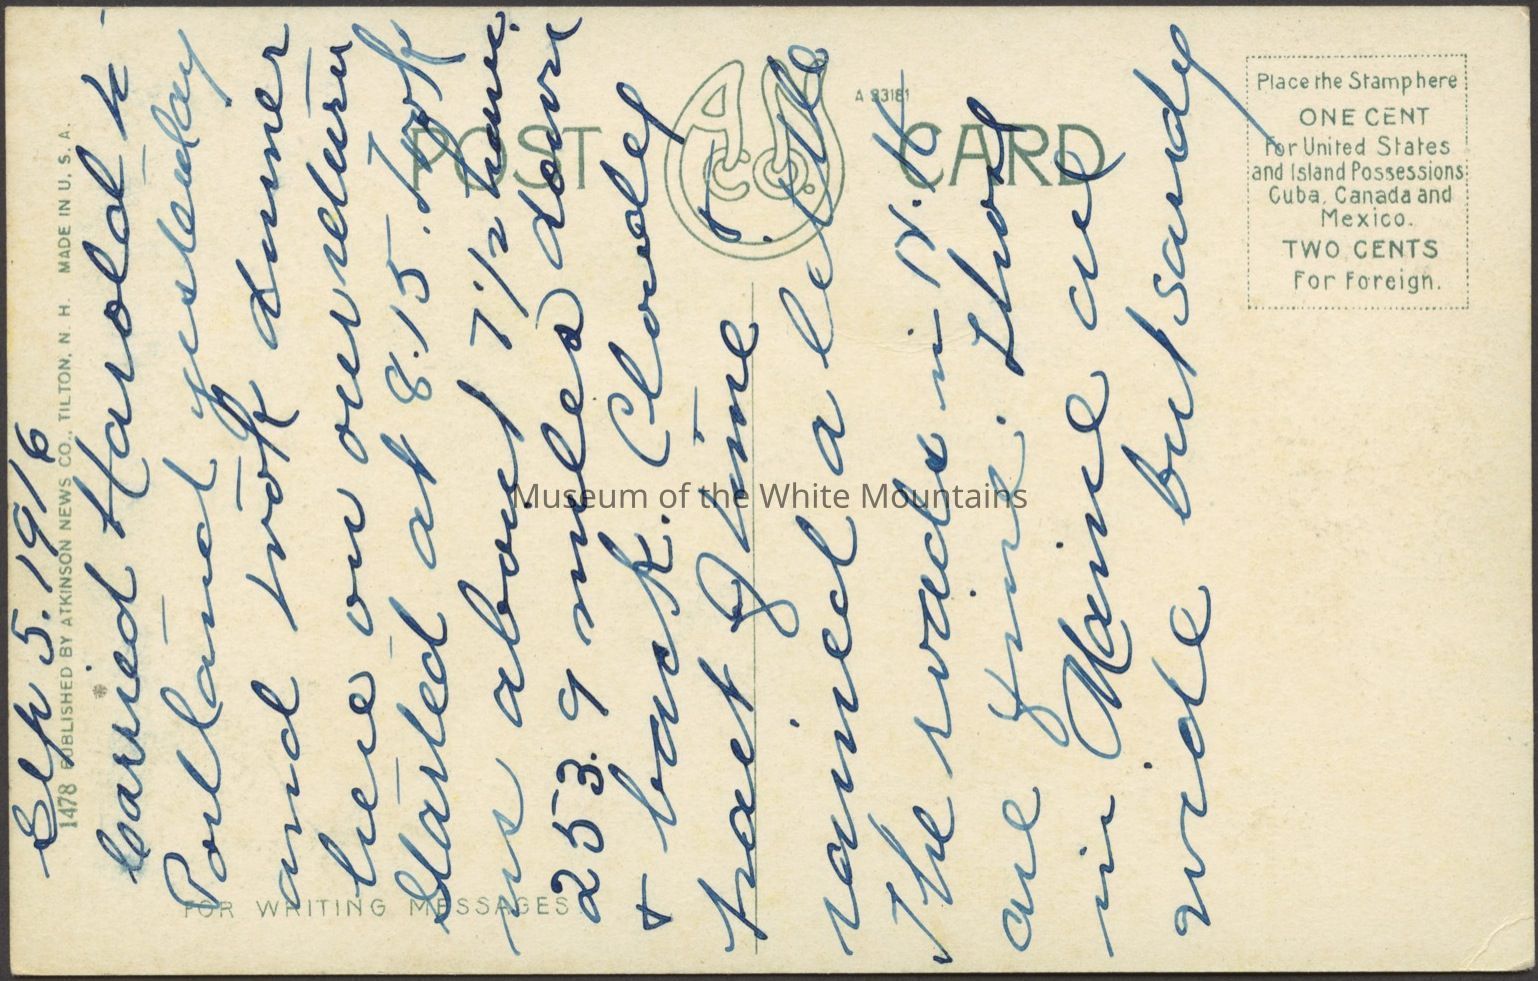 Sep 5. 1916
Carried Harold to
Portland yesterday
and took dinner
here on our return
Started at 8.15. took
us about 7 1/2 hours.
253.9 miles down
& back. Cloudy
part of time &
rained a little
The roads in N.H.
are fine. Those
in Maine are
wide but sandy
1478 PUBLISHED BY ATKINSON NEWS CO., TILTON, N. H. MADE IN U. S. A.
POST CARD
A Co.
A 93181
FOR WRITING MESSAGES
Place the Stamp here
ONE CENT
for United States
and Island Possessions
Cuba, Canada and
Mexico.
TWO CENTS
For Foreign.
Museum of the White Mountains